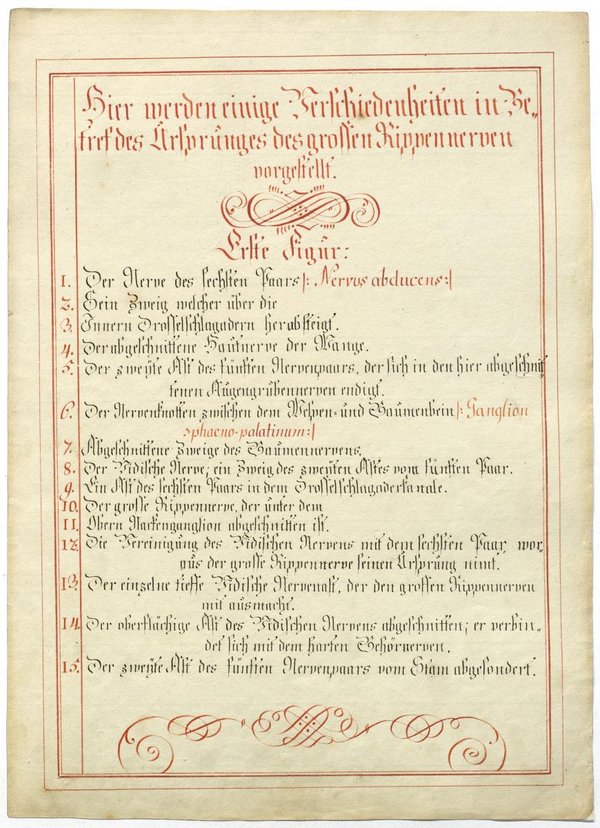 Hier werden einige Verschiedenheiten in Be-
tref des Ursprunges des grossen Rippennerven
vorgestellt.
Erste Figur:
1. Der Nerve des sechsten Paars /: Nervus abducens :/
2. Sein Zweig welcher über die
3. Innern Drosselschlagadern herabsteigt.
4. Der abgeschnittene Hautnerve der Wange.
5. Der zweyte Ast des fünften Nervenpaars, der sich in den hier abgeschnit
tenen Augengrübennerven endigt.
6. Der Nervenknotten zwischen dem Wespen- und Gaumenbein /: Ganglion
sphaeno-palatinum :/
7. Abgeschnittene Zweige des Gaumennervens.
8. Der Vidische Nerve, ein Zweig des zweyten Astes vom fünften Paar.
9. Ein Ast des sechsten Paars in dem Drosselschlagaderkanale.
10. Der grosse Rippennerve, der unter dem
11. Obern Nackenganglion abgeschnitten ist.
12. Die Vereinigung des Vidischen Nervens mit dem sechsten Paar, wor,
aus der grosse Rippennerve seinen Ursprung nimt.
13. Der einzelne tieffe Vidische Nervenast, der den grossen Rippennerven
mit ausmacht.
14. Der oberflächige Ast des Vidischen Nervens abgeschnitten; er verbin-
det sich mit dem harten Gehörnerven.
15. Der zweyte Ast des fünften Nervenpaars vom Stam abgesondert.